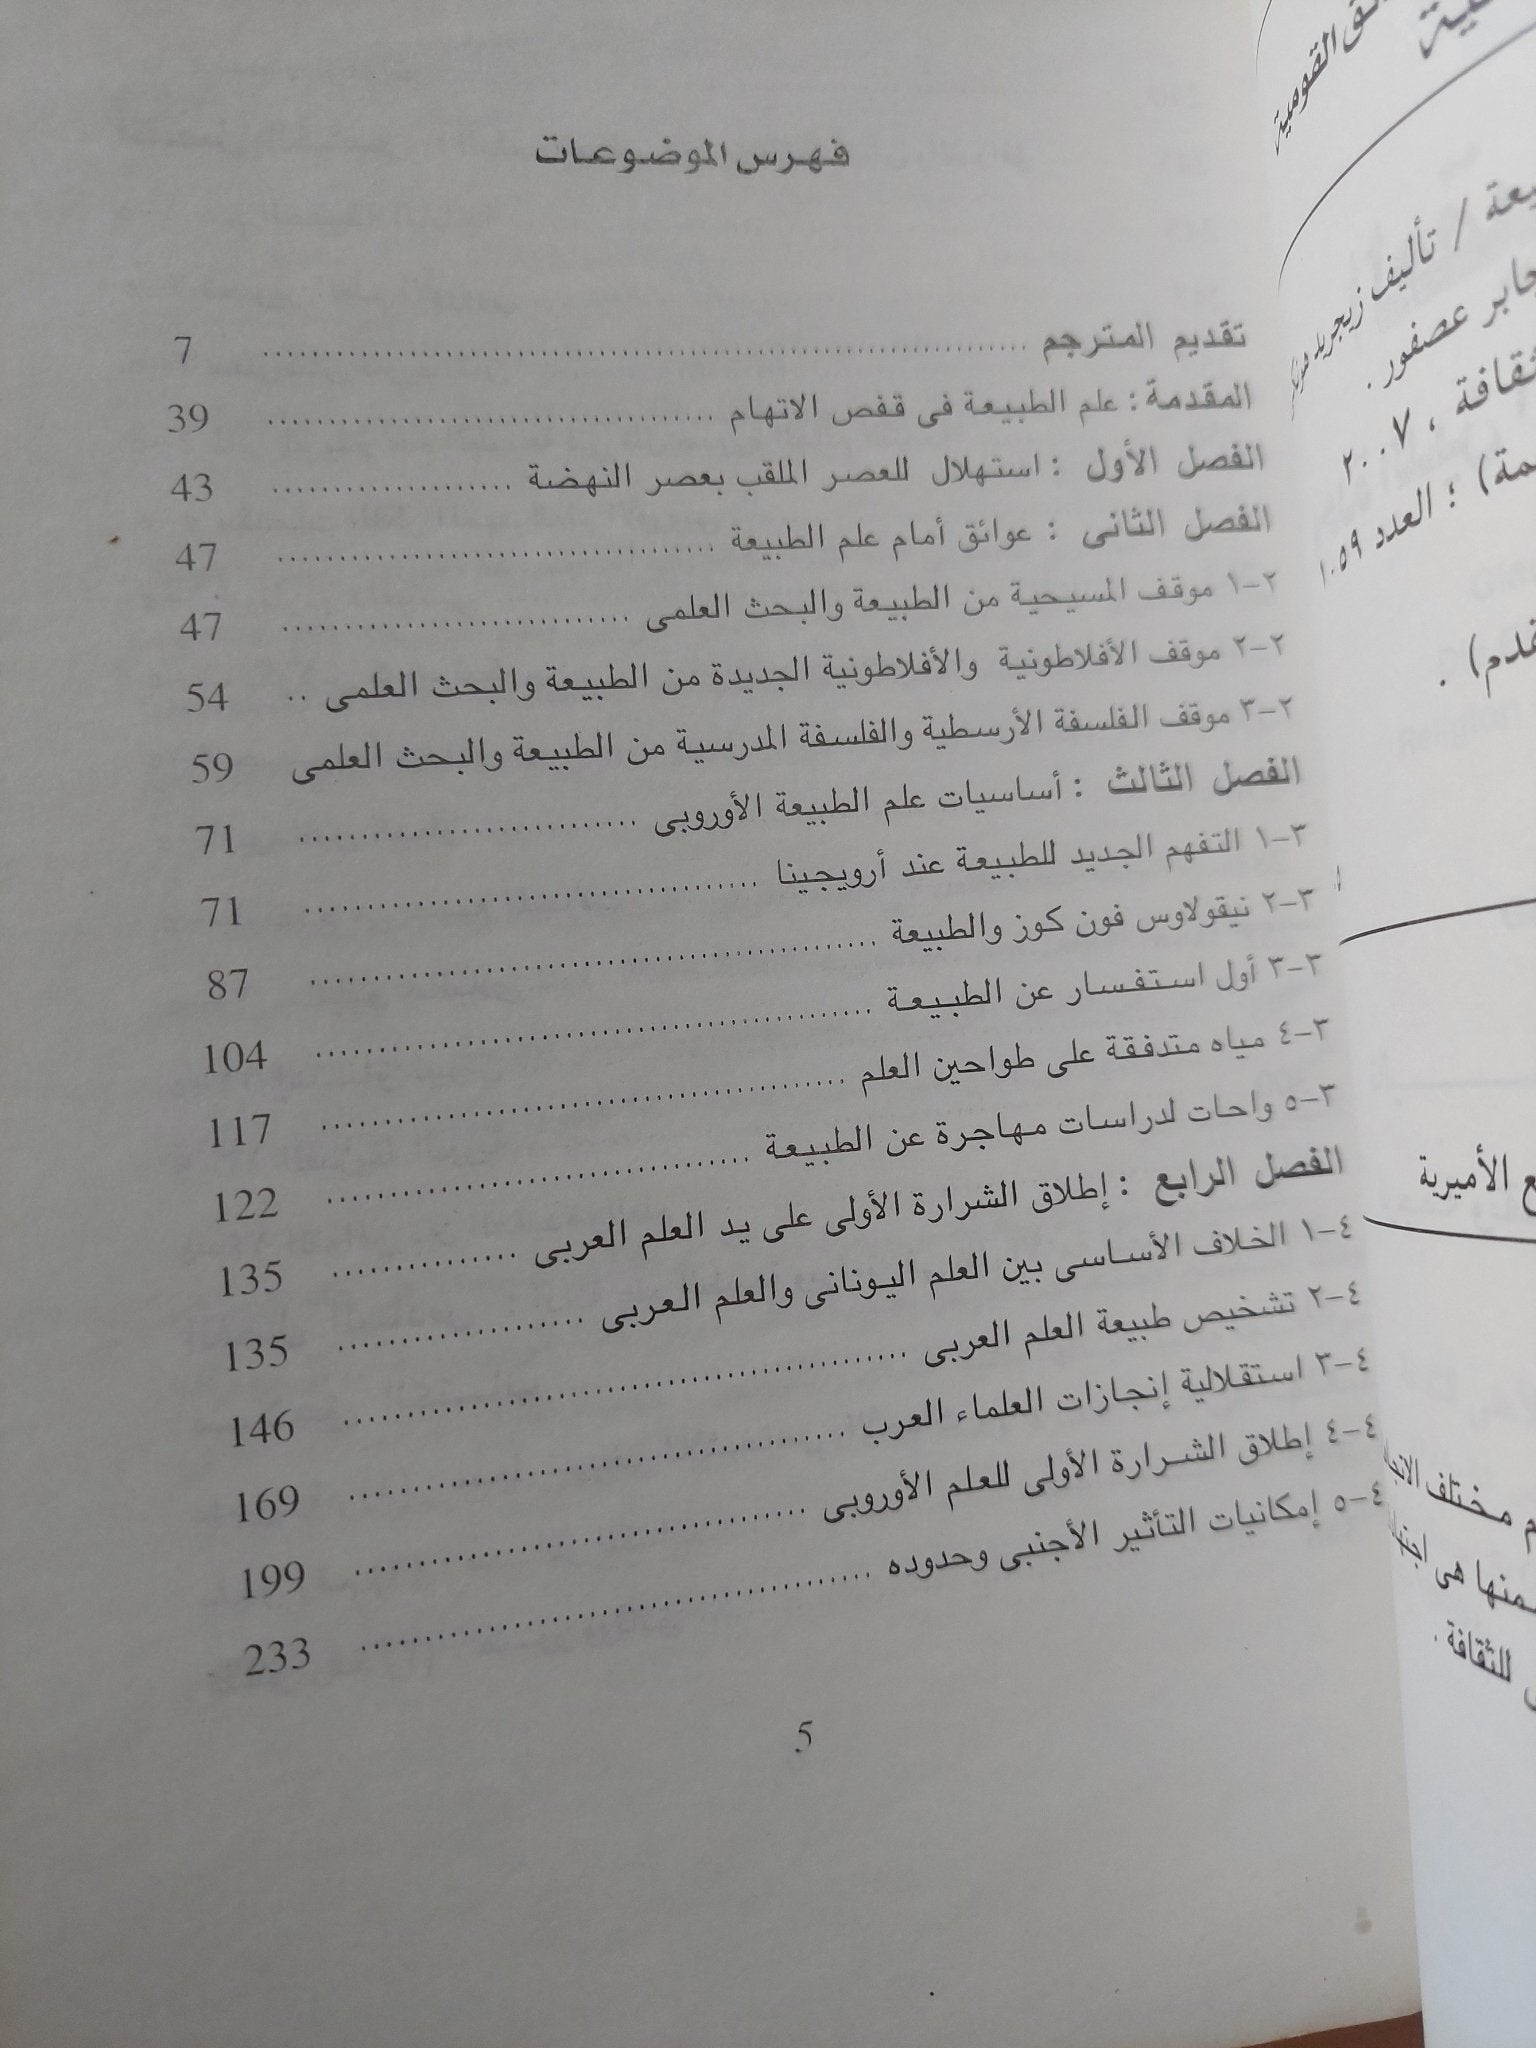 فهرس الموضوعات
تقديم المترجم ........ 7
المقدمة : علم الطبيعة فى قفص الاتهام ........ 39
الفصل الأول : استهلال للعصر الملقب بعصر النهضة ........ 43
الفصل الثانى : عوائق أمام علم الطبيعة ........ 47
٢-١ موقف المسيحية من الطبيعة والبحث العلمى ........ 47
٢-٢ موقف الأفلاطونية والأفلاطونية الجديدة من الطبيعة والبحث العلمى .. 54
٢-٣ موقف الفلسفة الأرسطية والفلسفة المدرسية من الطبيعة والبحث العلمى 59
الفصل الثالث : أساسيات علم الطبيعة الأوروبى ........ 71
٣-١ التفهم الجديد للطبيعة عند أرويجينا ........ 71
٣-٢ نيقولاوس فون كوز والطبيعة ........ 87
٣-٣ أول استفسار عن الطبيعة ........ 104
٣-٤ مياه متدفقة على طواحين العلم ........ 117
٣-٥ واحات لدراسات مهاجرة عن الطبيعة ........ 122
الفصل الرابع : إطلاق الشرارة الأولى على يد العلم العربى ........ 135
٤-١ الخلاف الأساسى بين العلم اليونانى والعلم العربى ........ 135
٤-٢ تشخيص طبيعة العلم العربى ........ 146
٤-٣ استقلالية إنجازات العلماء العرب ........ 169
٤-٤ إطلاق الشرارة الأولى للعلم الأوروبى ........ 199
٤-٥ إمكانيات التأثير الأجنبى وحدوده ........ 233
5
القومية
/ تأليف زيجريد
جابر عصفور .
، ٢٠٠٧
؛ العدد ١٠٥٩
الأميرية
مختلف
هى
للثقافة .